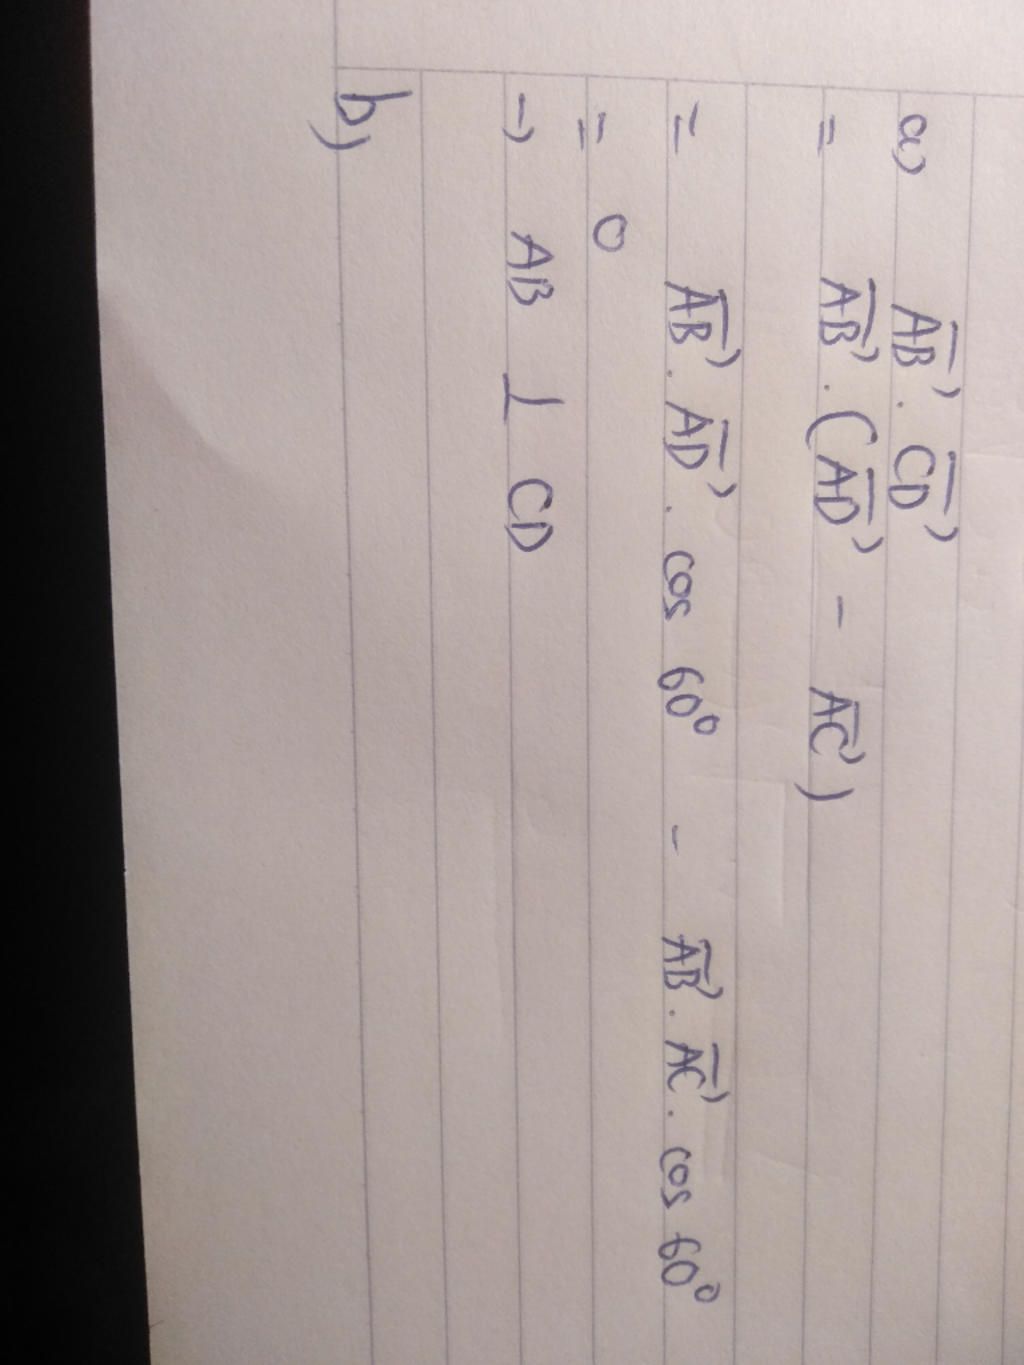 a) AB⃗ . CD⃗
= AB⃗ . (AD⃗ - AC⃗)
= AB⃗ . AD⃗ . cos 60° - AB⃗ . AC⃗ . cos 60°
= 0
→ AB ⊥ CD
b)